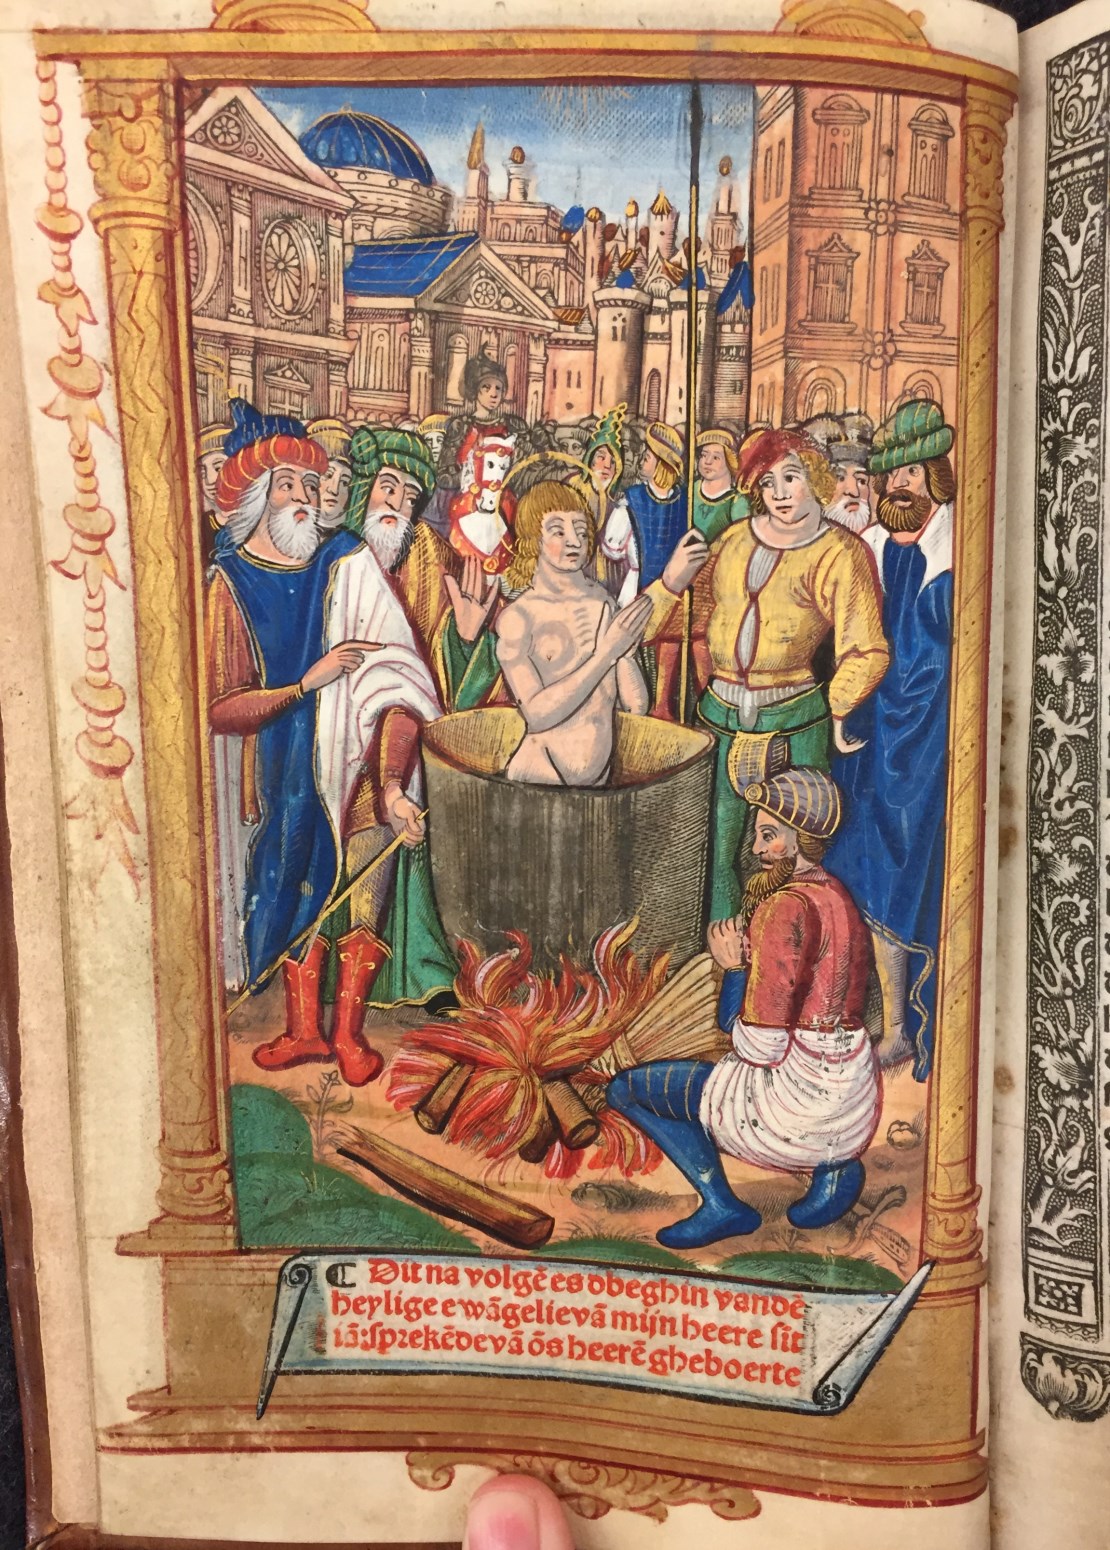 ⸿ Dit na volgē es dbeghin vandē
heylige ewāgelie vā mijn heere sīt
iā: sprekēde vā ōs heerē gheboerte